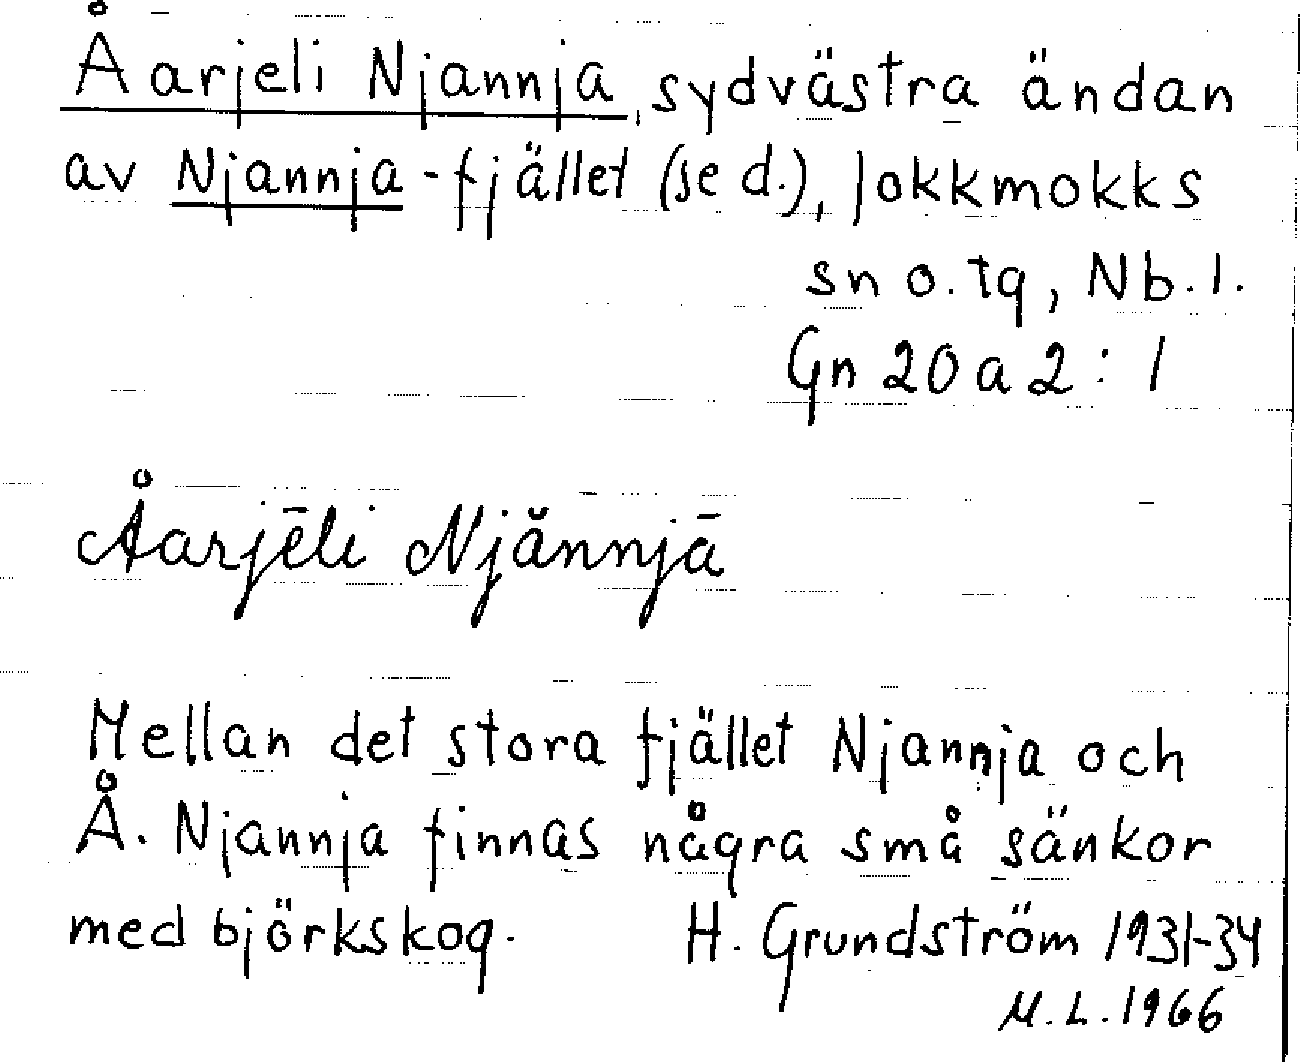 Åarjeli Njannja, sydvästra ändan
av Njannja-fjället (se d.), Jokkmokks
sn o. tg, Nb. l.
Gn 20 a 2 : 1
Åarjēli Njănnjā
Mellan det stora fjället Njannja och
Å. Njannja finnas några små sänkor
med björkskog. H. Grundström 1931-34
M. L. 1966